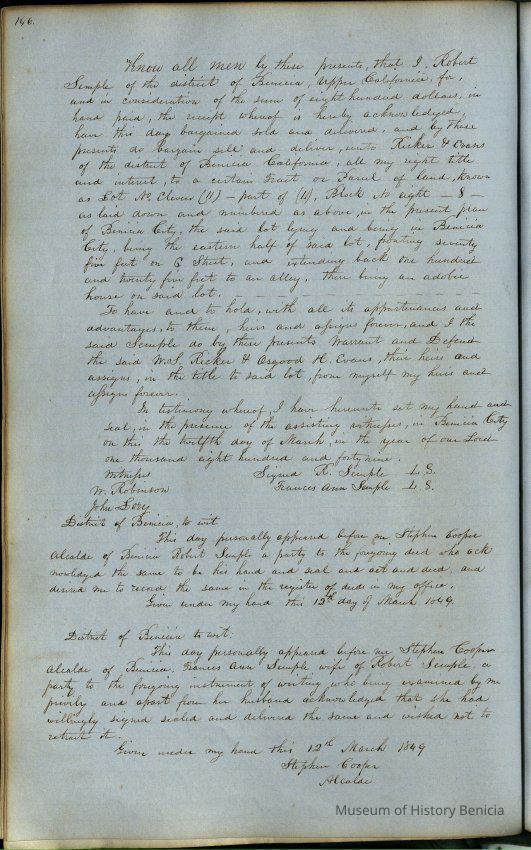 146.
Know all men by these presents, that I, Robert
Semple of the district of Benicia, Upper California, for,
and in consideration of the sum of eight hundred dollars, in
hand paid, the receipt whereof is hereby acknowledged,
have this day bargained sold and delivered, and by these
presents do bargain sell and deliver, unto Ricker & Evans
of the district of Benicia California, all my right title
and interest, to a certain Tract or Parcel of land, known
as Lot No. Eleven (11) - part of (11), Block No eight - 8 -
as laid down and numbered as above, in the present plan
of Benicia City, the said lot lying and being in Benicia
City, being the eastern half of said lot, fronting seventy
five feet on G Street, and extending back one hundred
and twenty five feet to an alley. there being an adobie
house on said lot.
To have and to hold, with all its appurtenances and
advantages, to them, heirs and assigns forever, and I the
said Semple do by these presents Warrant and Defend
the said W. S. Ricker & Osgood H. Evans, their heirs and
assigns, in the title to said lot, from myself my heirs and
assigns forever.
In testimony whereof, I have hereunto set my hand and
seal, in the presence of the assisting witnesses, in Benicia City
on this the twelfth day of March, in the year of our Lord
one thousand eight hundred and forty nine.
Witness Signed R. Semple L. S.
W. Robinson Frances Ann Semple L. S.
John
District of Benicia, to wit
This day personally appeared before me Stephen Cooper
Alcalde of Benicia Robert Semple a party to the foregoing deed who ack
nowledged the same to be his hand and seal and act and deed, and
desired me to record the same in the register of deeds in my office.
Given under my hand this 12th day of March 1849.
District of Benicia to wit:
This day personally appeared before me Stephen Cooper
Alcalde of Benicia, Frances Ann Semple wife of Robert Semple, a
party to the foregoing instrument of writing who being examined by me
privily and apart from her husband acknowledged that she had
willingly signed sealed and delivered the same and wished not to
retract it.
Given under my hand this 12th March 1849
Stephen Cooper
Alcalde
Museum of History Benicia